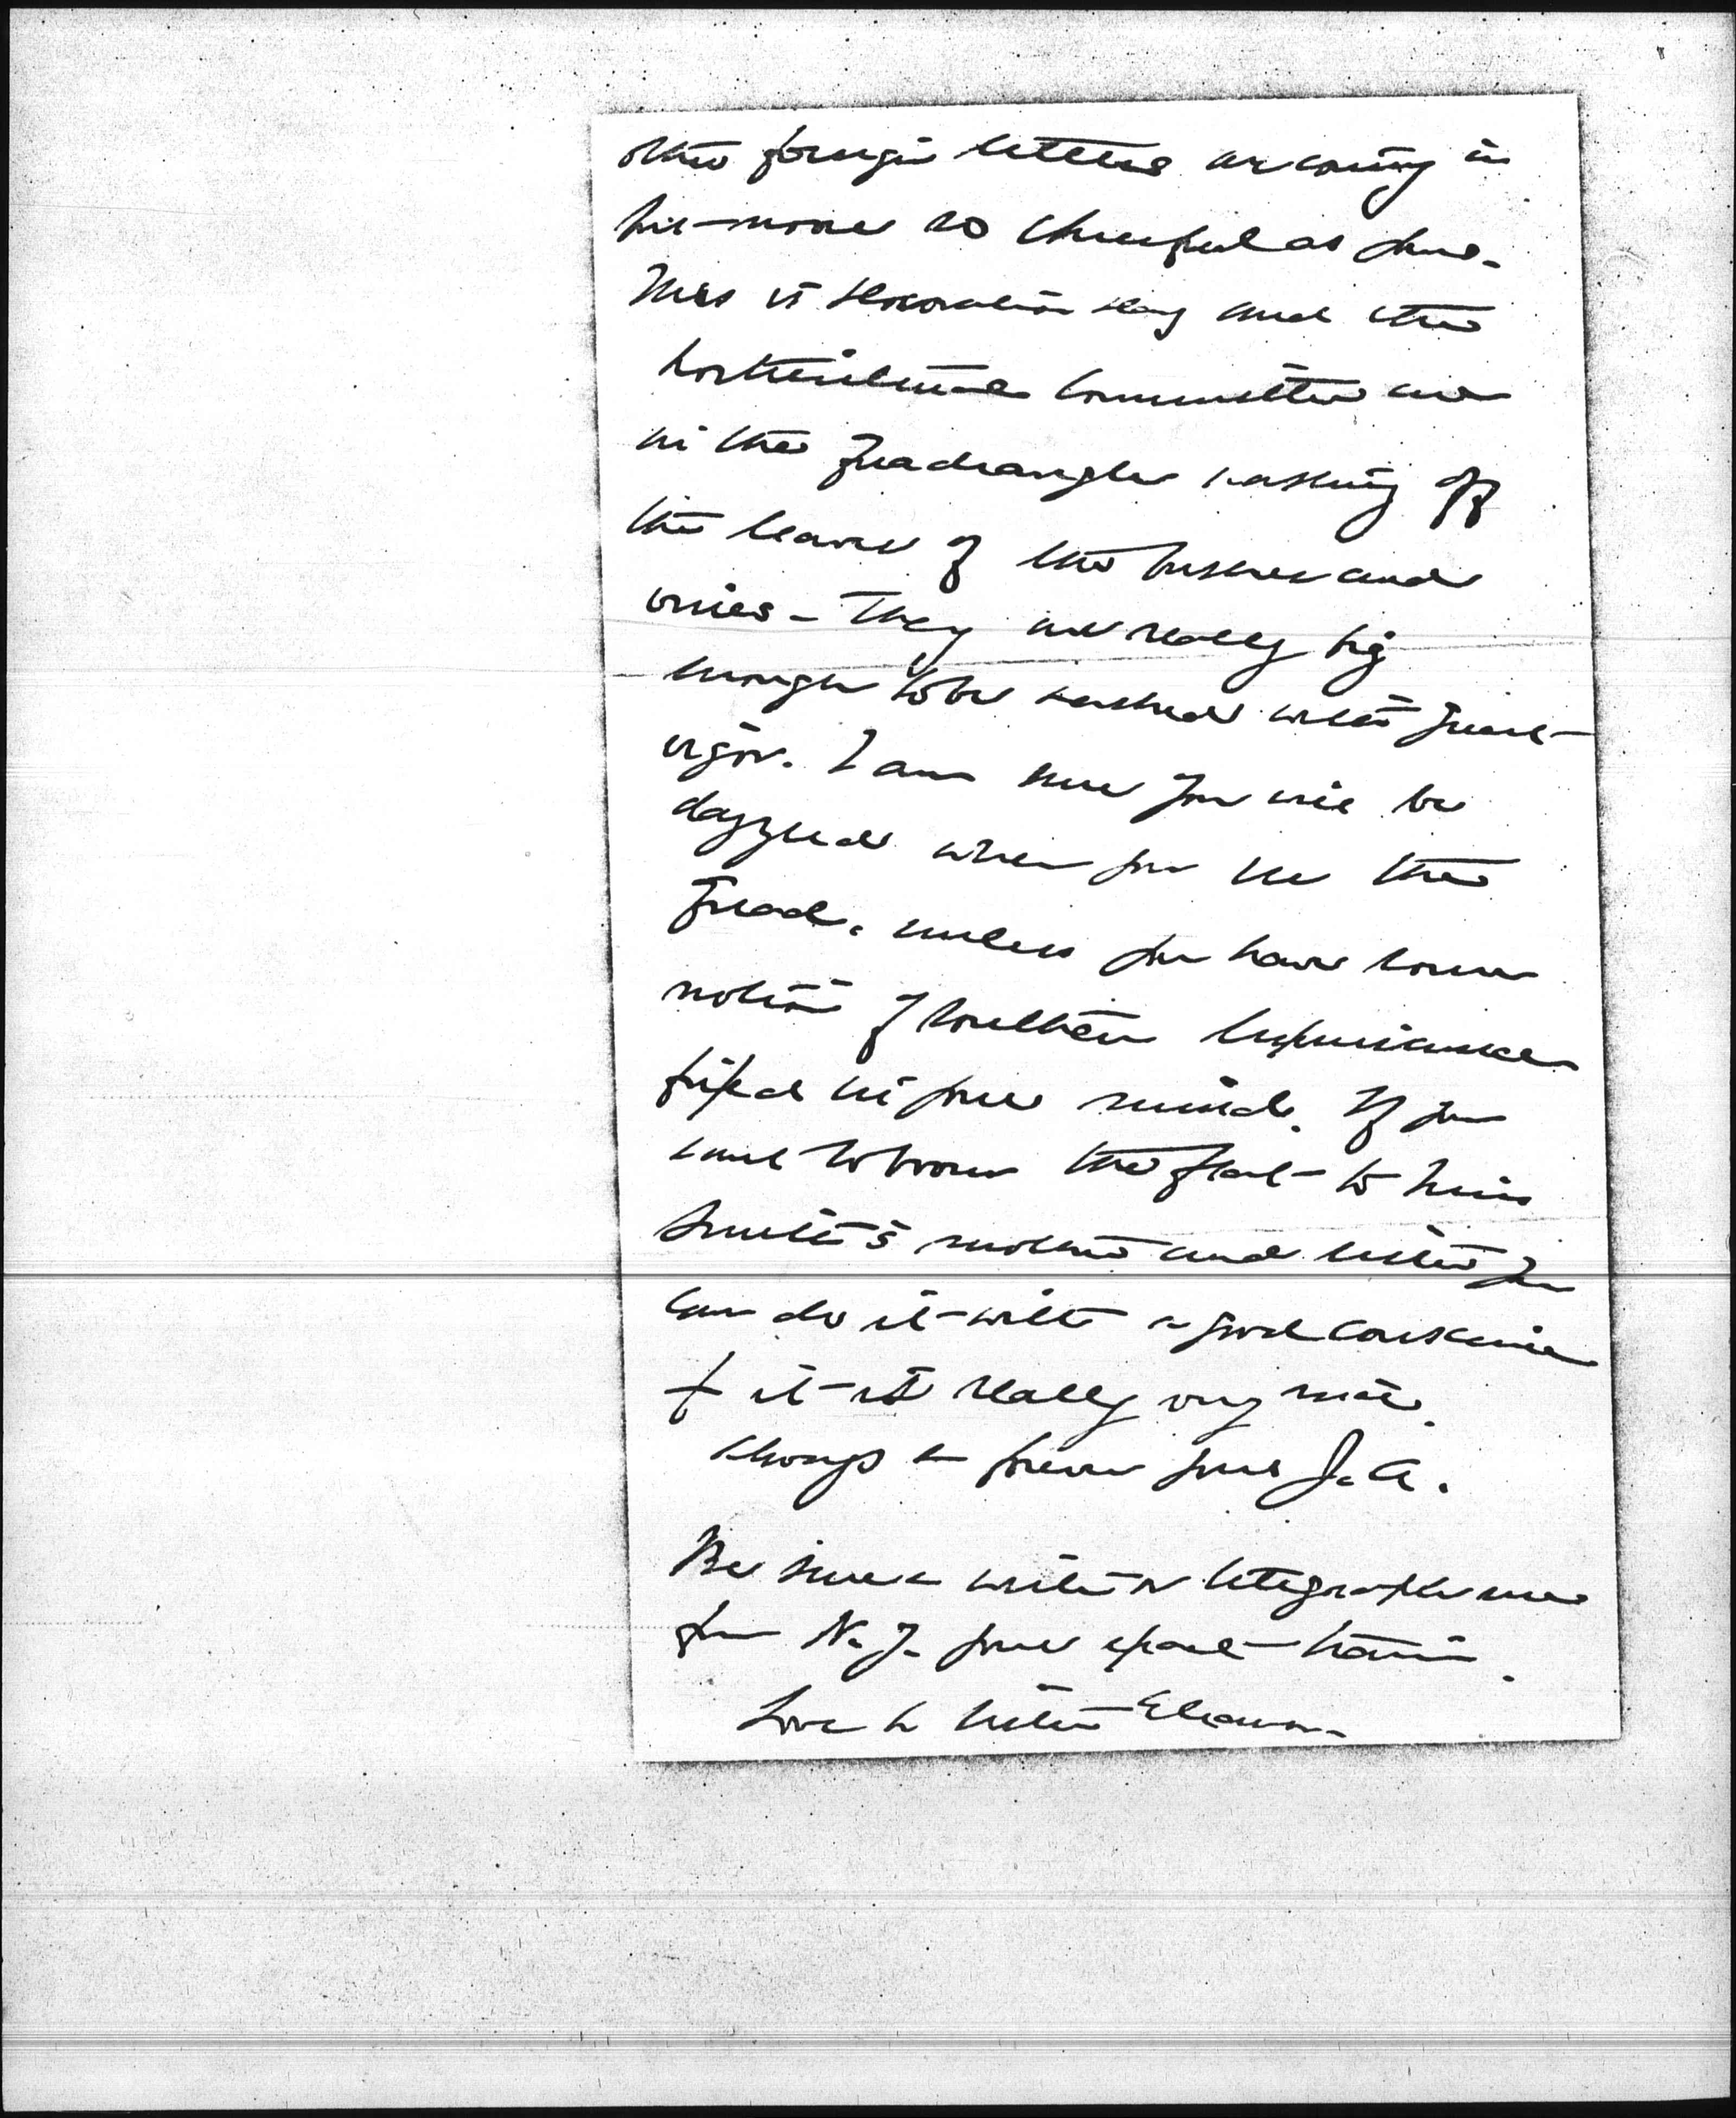 other foreign letters are coming in
but none so cheerful as yours.
This is decoration day and the
horticultural committee are
in the quadrangle washing off
the leaves of the bushes and
vines - They are really big
enough to be washed with great
vigor. I am sure you will be
dazzled when you see the
quad. unless you have some
notion of southern luxuriance
fixed in your mind. If you
want to loan the flat to Miss
Smith's mother and sister you
can do it with a good conscience
& it is really very nice.
Always & forever yours J. A.
Be sure & write or telegraph me
from N. Y. your exact train.
Love to sister Eleanor